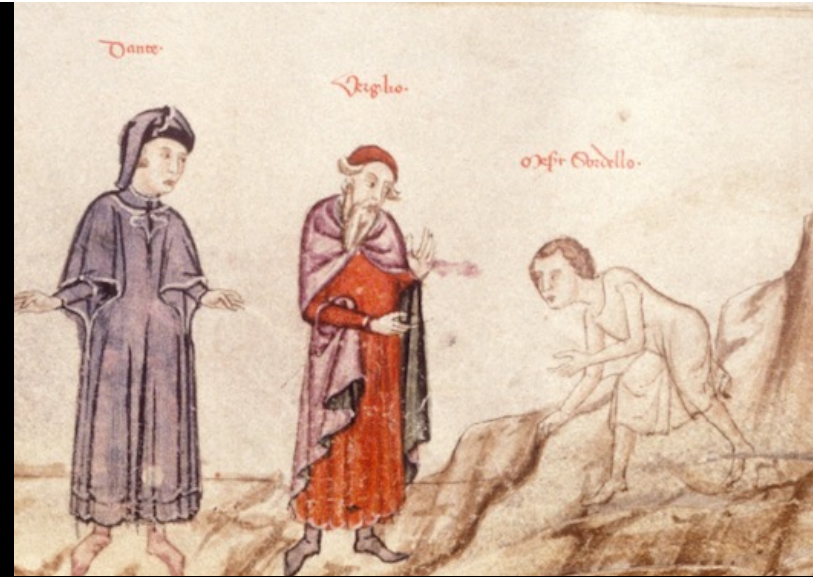 Dante.
Vergilio.
Messer Sordello.